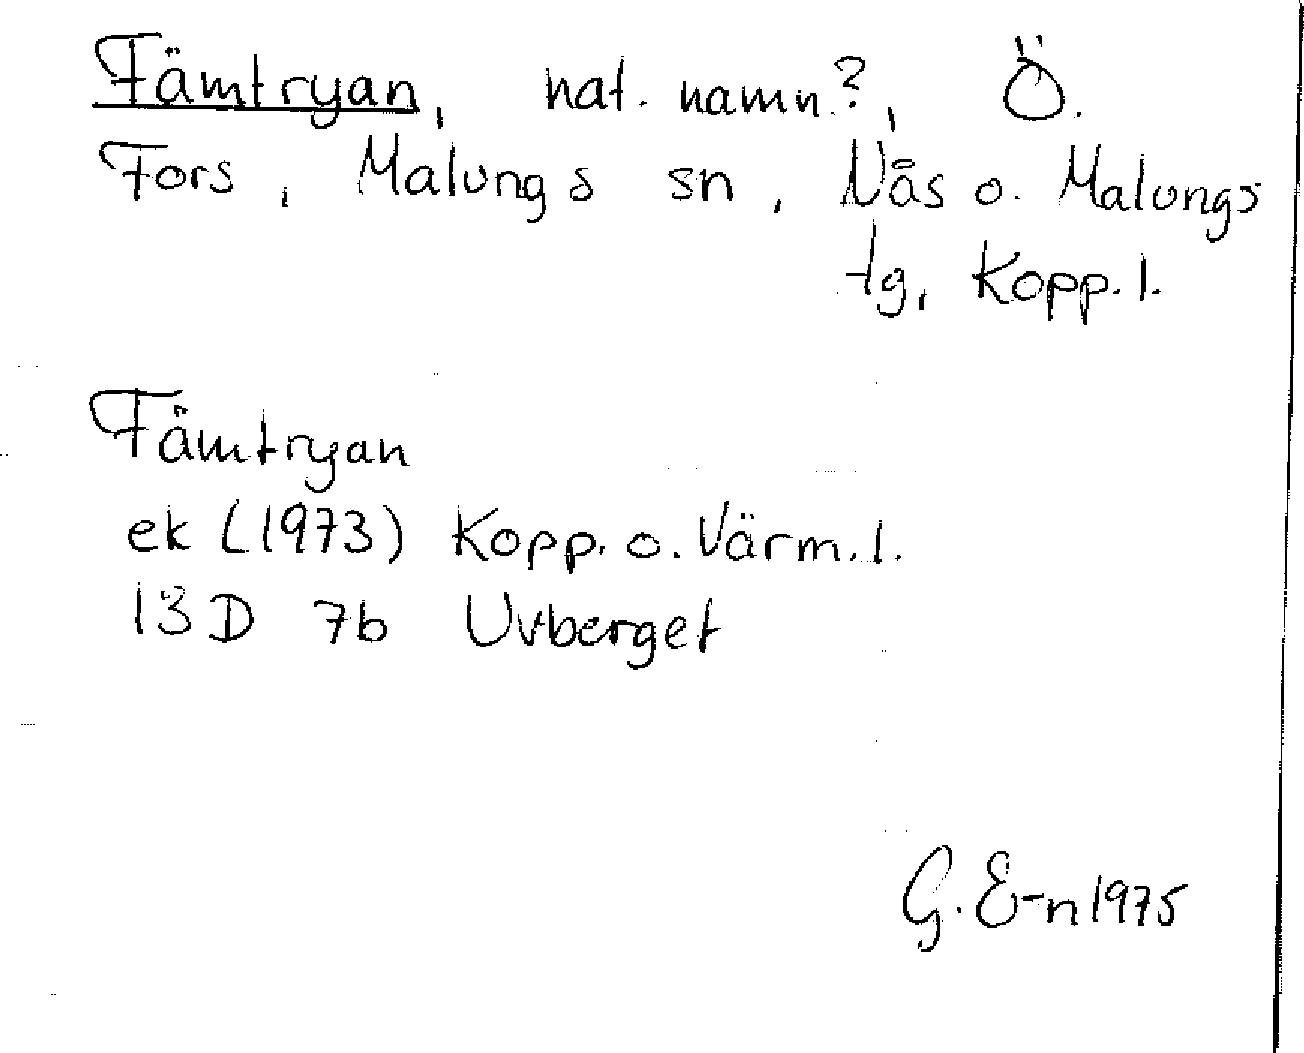 Fämtryan, nat. namn?, Ö.
Fors, Malungs sn, Nås o. Malungs
tg, Kopp. l.
Fämtryan
ek (1973) Kopp. o. Värm. l.
13 D 7b Uvberget
G. E-n 1975